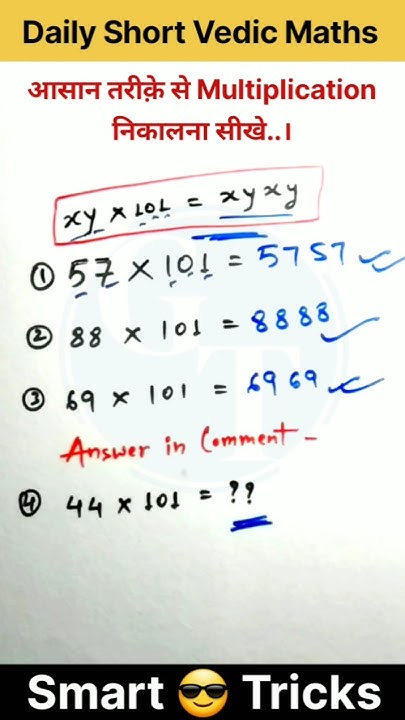 Daily Short Vedic Maths
आसान तरीक़े से Multiplication
निकालना सीखे..।
xy × 101 = xyxy
① 57 × 101 = 5757
② 88 × 101 = 8888
③ 69 × 101 = 6969
Answer in Comment -
④ 44 × 101 = ??
Smart 😎 Tricks